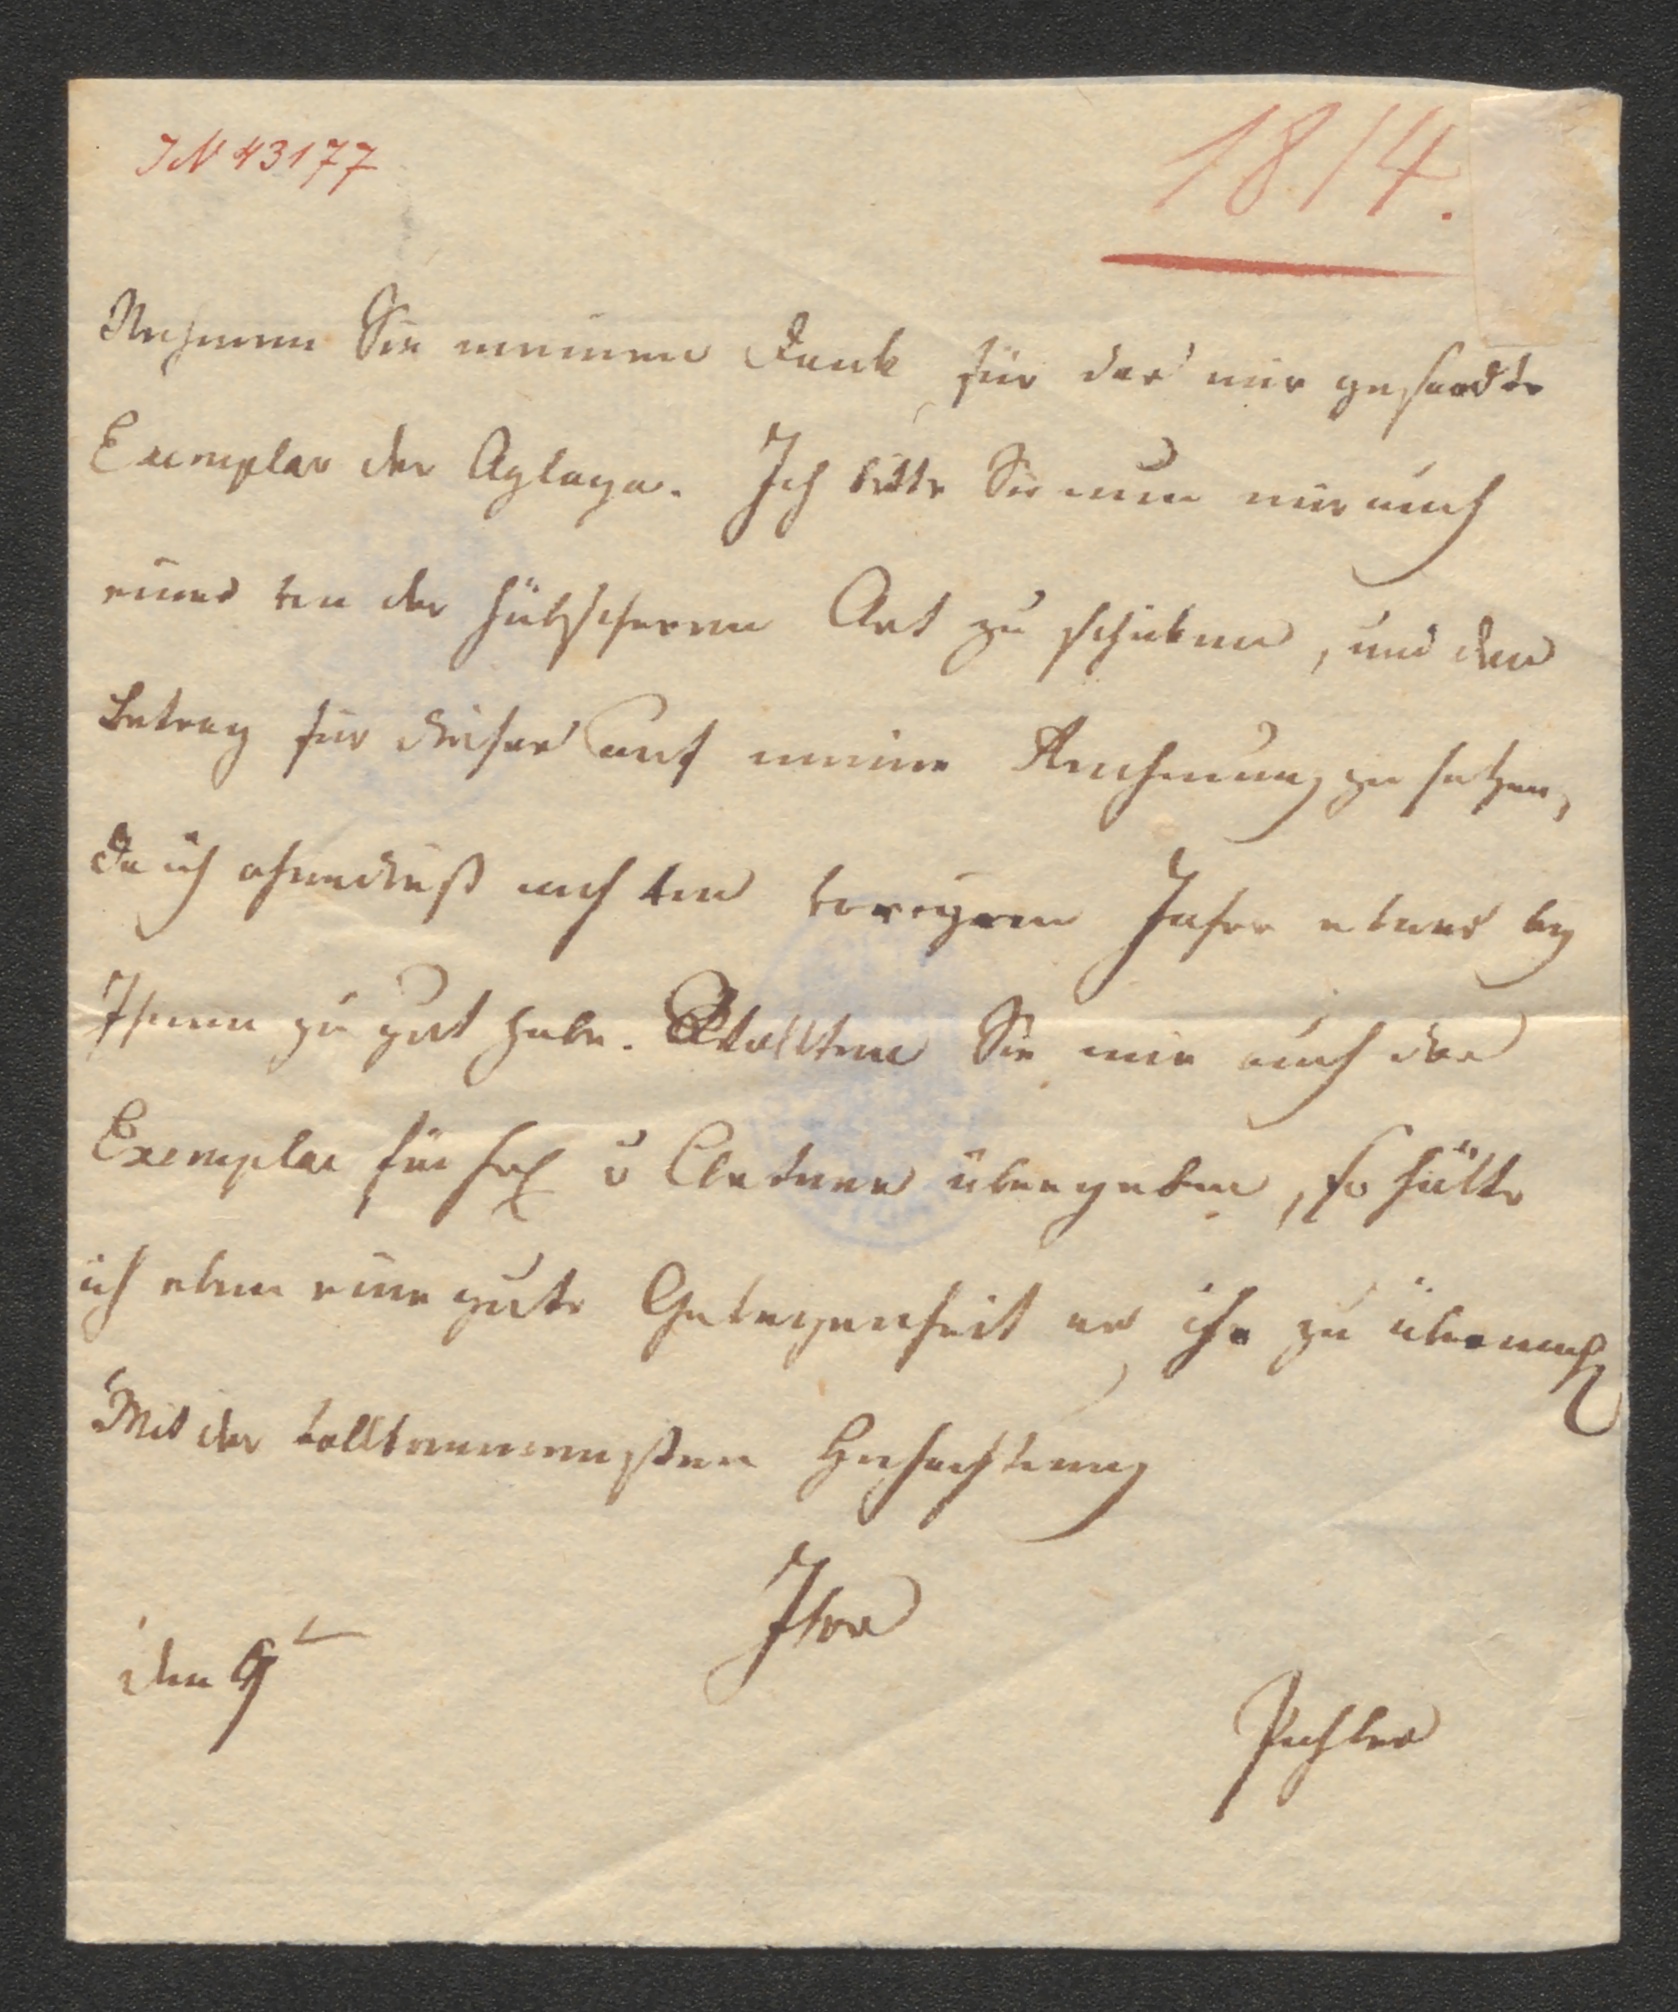 IN 43177
1814.
Nehmen Sie meinen Dank für das mir gesandte
Exemplar der Aglaya. Ich bitte Sie nun mir auch
eines von der hübschern Art zu schicken, und den
Betrag für dieses auf meine Rechnung zu setzen,
da ich ohnedieß noch von vorigem Jahre etwas bey
Ihnen zu gut habe. Wollten Sie mir auch das
Exemplar für Frl v Artner übergeben, so hätte
ich eben eine gute Gelegenheit es ihr zu übermach
Mit der vollkommensten Hochachtung
Ihre
den 9
Pichler